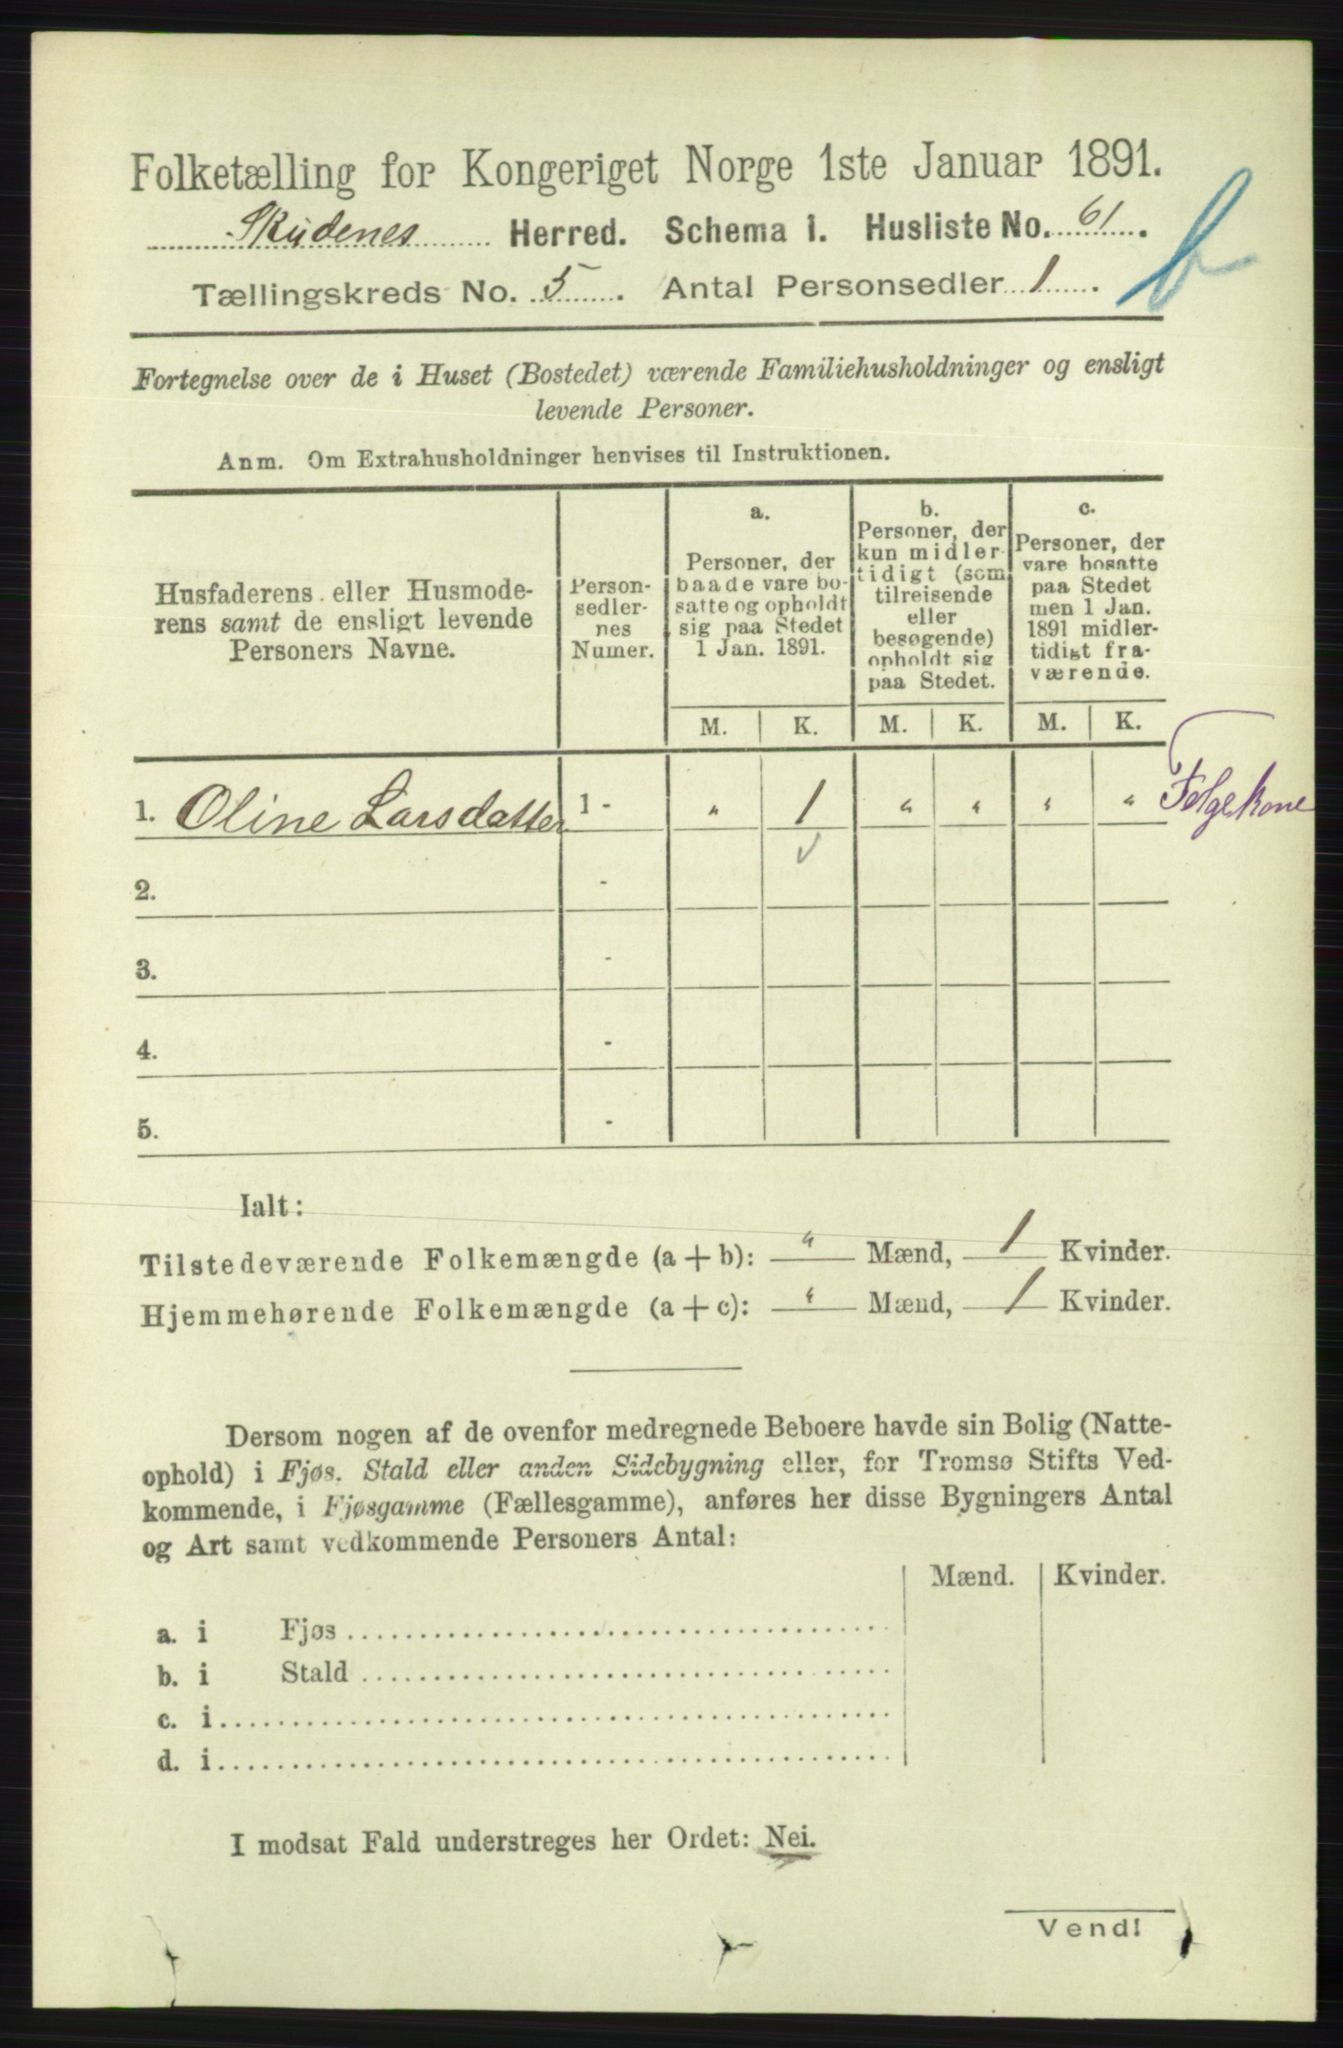 Folketælling for Kongeriget Norge 1ste Januar 1891.
Skudenes Herred. Schema 1. Husliste No. 61.
Tællingskreds No. 5. Antal Personsedler 1.
b
Fortegnelse over de i Huset (Bostedet) værende Familiehusholdninger og ensligt
levende Personer.
Anm. Om Extrahusholdninger henvises til Instruktionen.
Husfaderens eller Husmode-
rens samt de ensligt levende
Personers Navne.
Person-
sedler-
nes
Numer.
a.
Personer, der
baade vare bo-
satte og opholdt
sig paa Stedet
1 Jan. 1891.
b.
Personer, der
kun midler-
tidigt (som
tilreisende
eller
besøgende)
opholdt sig
paa Stedet.
c.
Personer, der
vare bosatte
paa Stedet
men 1 Jan.
1891 midler-
tidigt fra-
værende.
M. K. M. K. M. K.
1. Oline Larsdatter 1 - " 1 " " " " Følgekone
2. -
3. -
4. -
5. -
Ialt:
Tilstedeværende Folkemængde (a + b): " Mænd, 1 Kvinder.
Hjemmehørende Folkemængde (a + c): " Mænd, 1 Kvinder.
Dersom nogen af de ovenfor medregnede Beboere havde sin Bolig (Natte-
ophold) i Fjøs. Stald eller anden Sidebygning eller, for Tromsø Stifts Ved-
kommende, i Fjøsgamme (Fællesgamme), anføres her disse Bygningers Antal
og Art samt vedkommende Personers Antal:
Mænd. Kvinder.
a. i Fjøs
b. i Stald
c. i
d. i
I modsat Fald understreges her Ordet: Nei.
Vend!